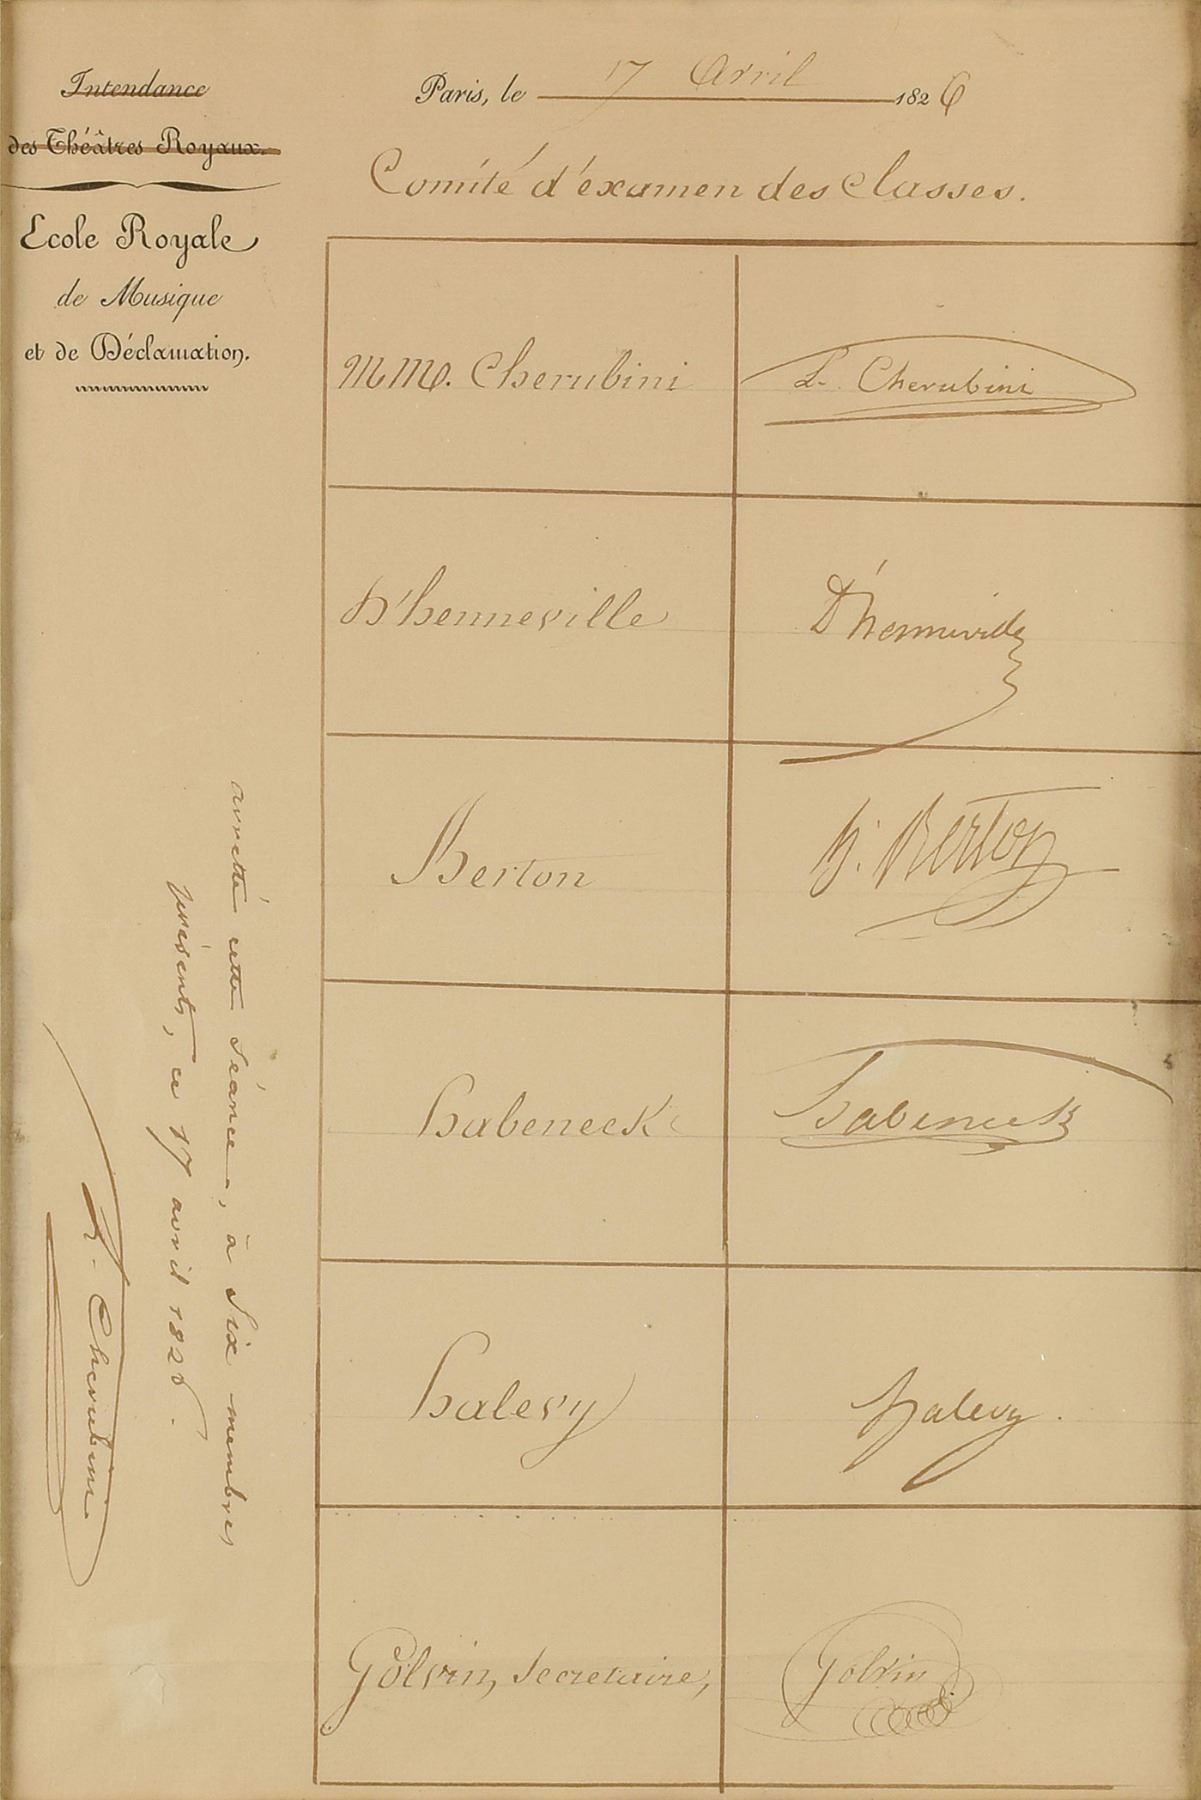 Intendance
des Théâtres Royaux.
Ecole Royale
de Musique
et de Déclamation.
Paris, le 17 Avril 1826
Comité d'éxamen des Classes.
MM. Cherubini
L. Cherubini
D'henneville
D'henneville
Berton
h. Berton
habeneck
habeneck
halevy
halevy.
Golvin, Secretaire,
Golvin
arretté cette séance, à Six membres
présents, ce 17 avril 1826.
L. Cherubini